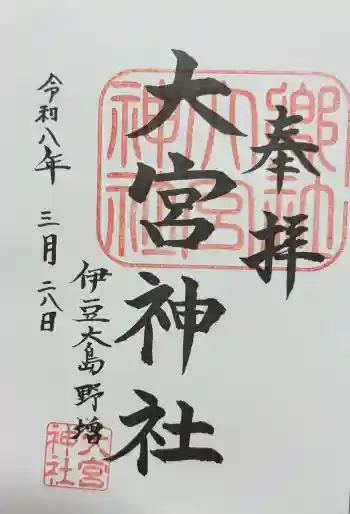 奉拝
大宮神社
伊豆大島野増
令和八年 三月 二八日
郷社
大宮
神社
大宮
神社